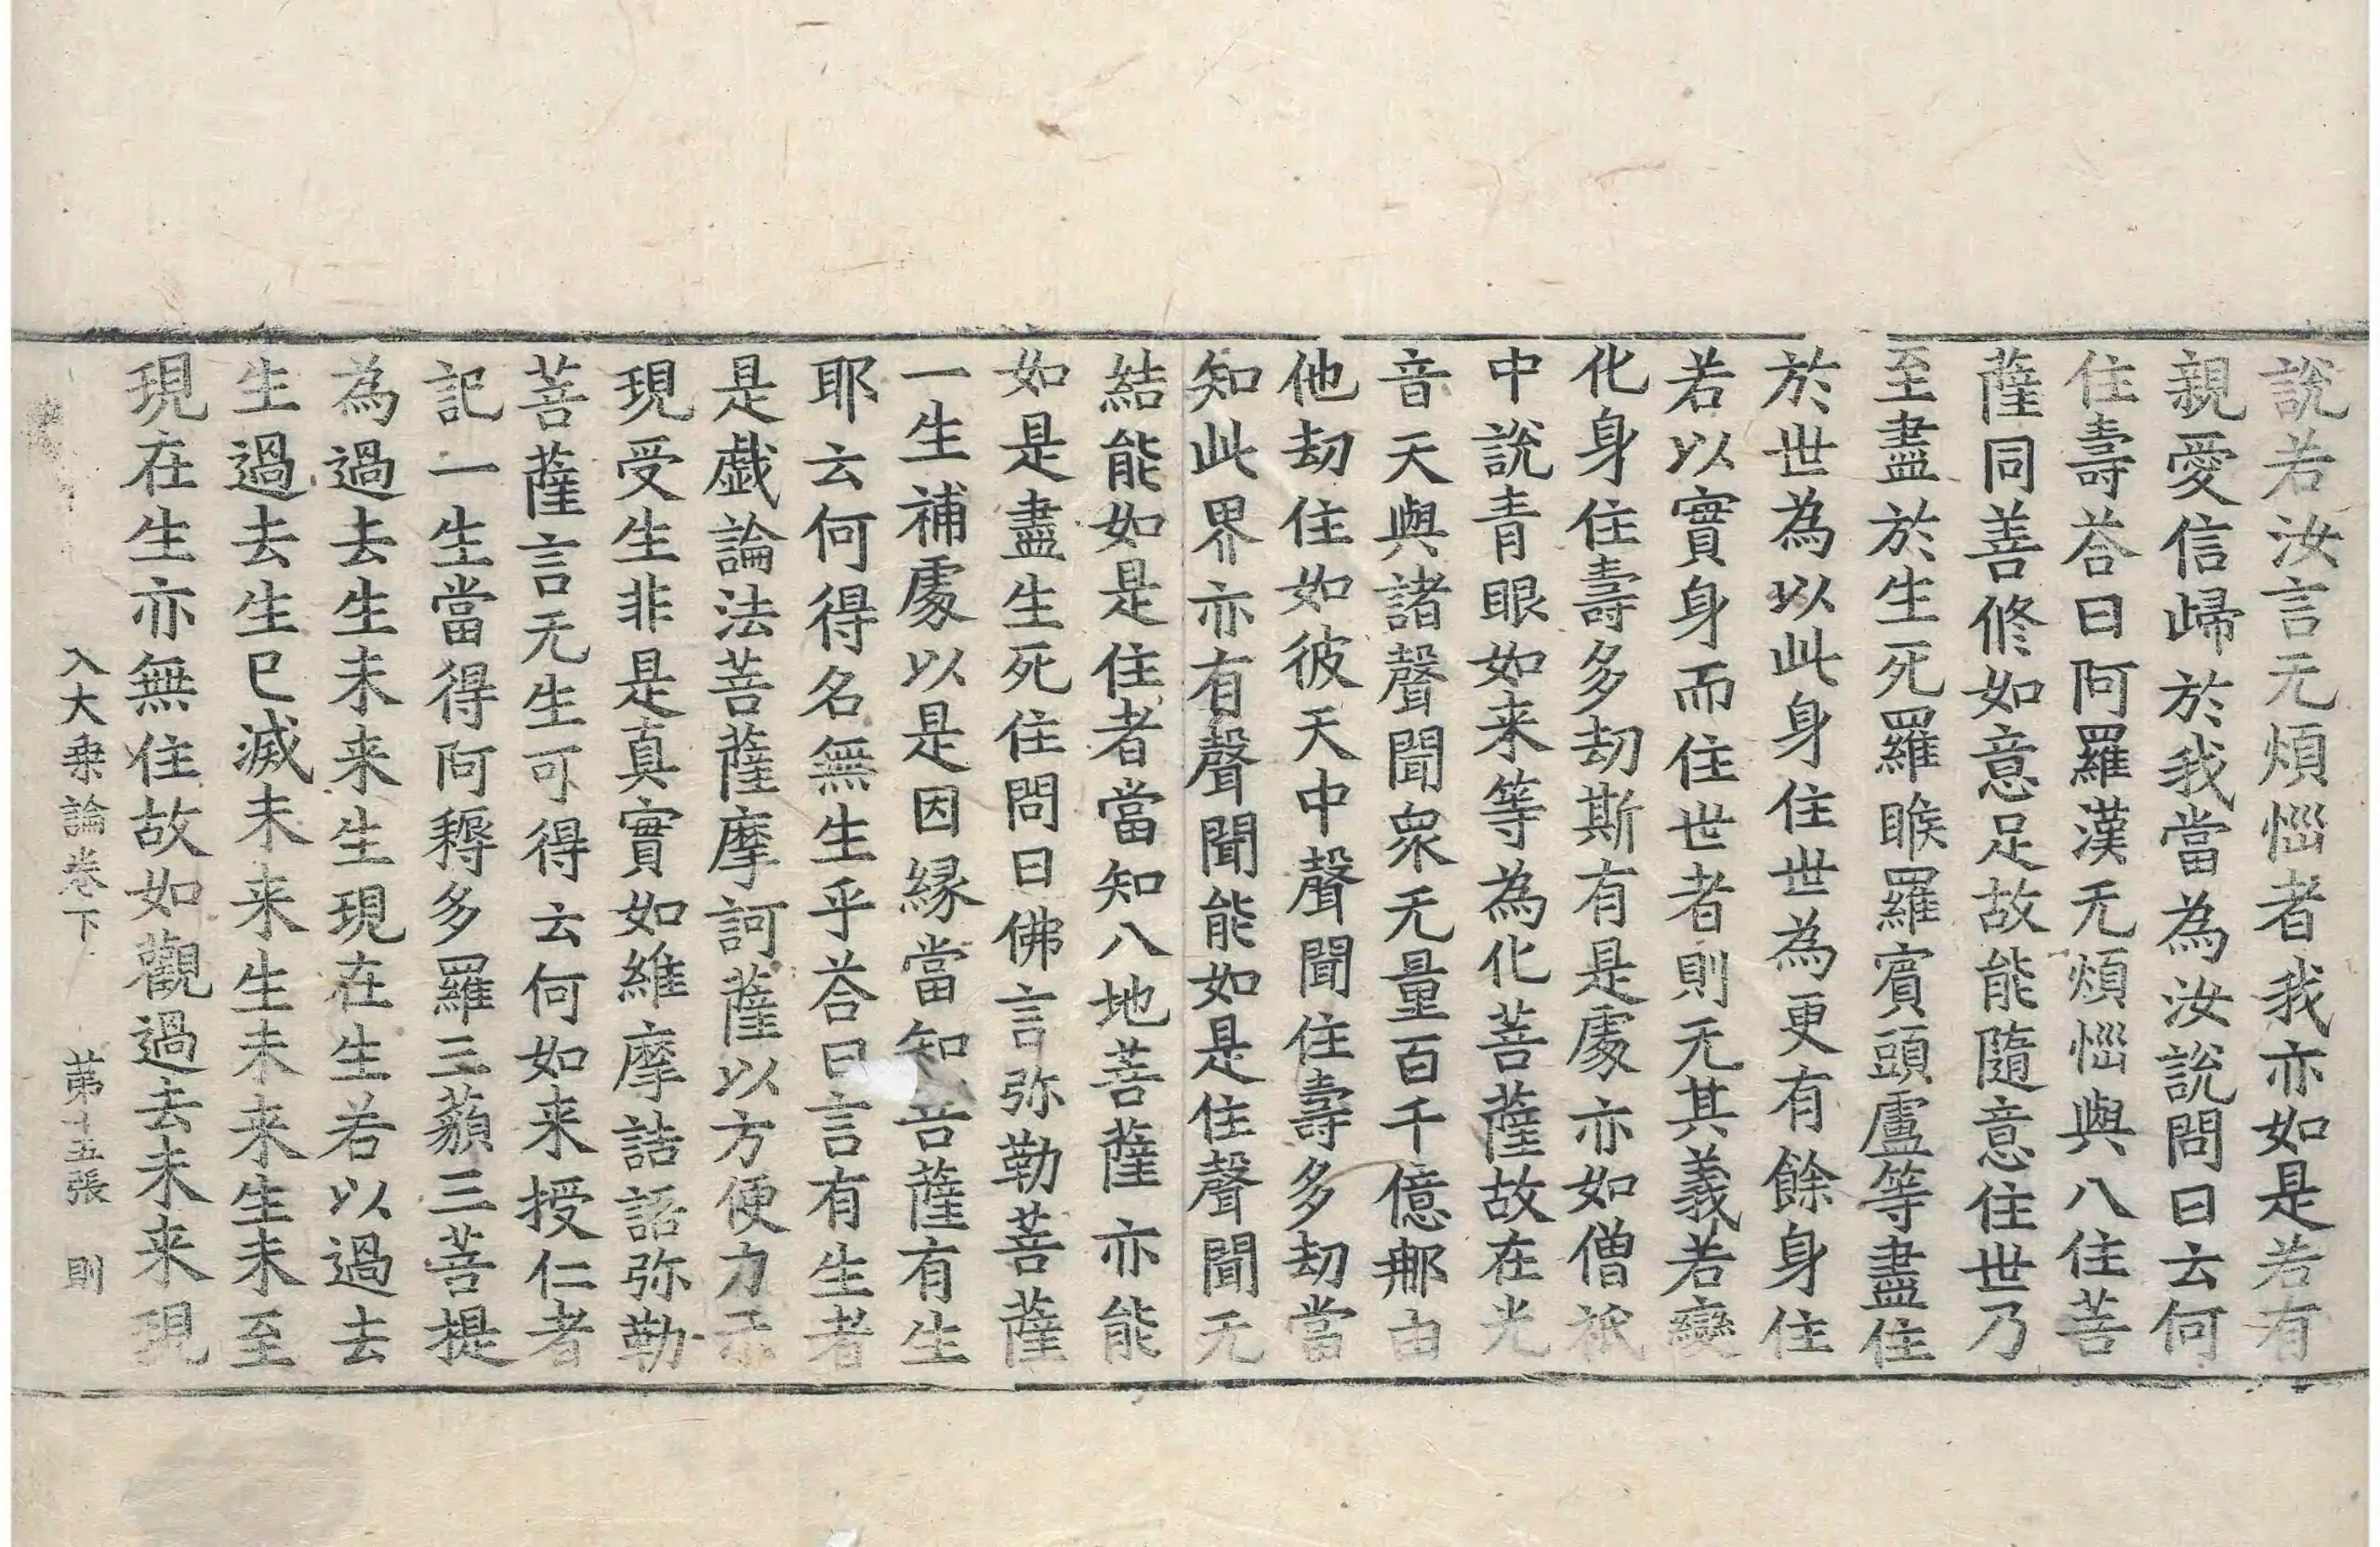 說若汝言无煩惱者我亦如是若有
親愛信歸於我當為汝說問曰云何
住壽荅曰阿羅漢无煩惱與八住菩
薩同善修如意足故能隨意住世乃
至盡於生死羅睺羅賓頭盧等盡住
於世為以此身住世為更有餘身住
若以實身而住世者則无其義若變
化身住壽多劫斯有是處亦如僧祇
中說青眼如来等為化菩薩故在光
音天與諸聲聞衆无量百千億那由
他劫住如彼天中聲聞住壽多劫當
知此界亦有聲聞能如是住聲聞无
結能如是住者當知八地菩薩亦能
如是盡生死住問曰佛言弥勒菩薩
一生補處以是因緣當知菩薩有生
耶云何得名無生乎荅曰言有生者
是戯論法菩薩摩訶薩以方便力示
現受生非是真實如維摩詰語弥勒
菩薩言无生可得云何如来授仁者
記一生當得阿耨多羅三藐三菩提
為過去生未来生現在生若以過去
生過去生已滅未来生未来生未至
現在生亦無住故如觀過去未来現
入大乗論卷下 苐十五張 則